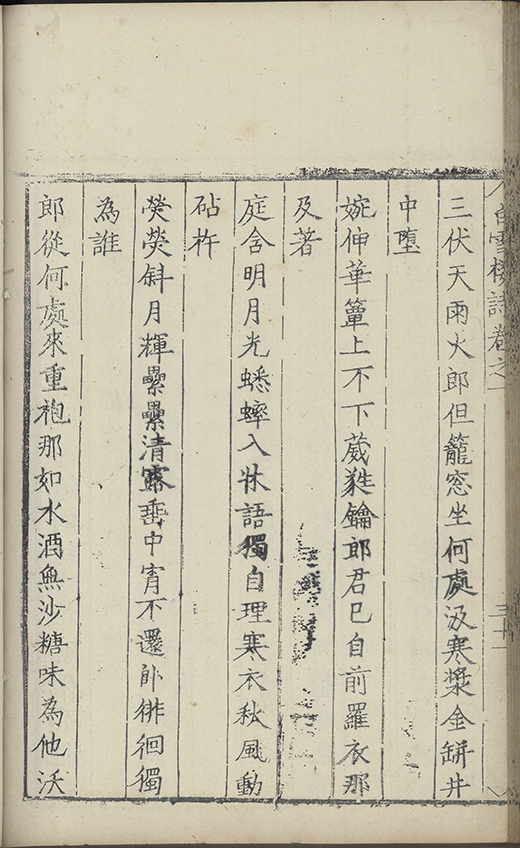 白雪樓詩卷之一
三十一
三伏天雨火郎但籠窓坐何處汲寒漿金缾井
中墮
婉伸華簟上不下葳蕤鑰郎君已自前羅衣那
及著
庭含明月光蟋蟀入牀語獨自理寒衣秋風動
砧杵
熒熒斜月輝纍纍清露垂中宵不還卧徘徊獨
為誰
郎從何處來重袍那如水酒無沙糖味為他沃